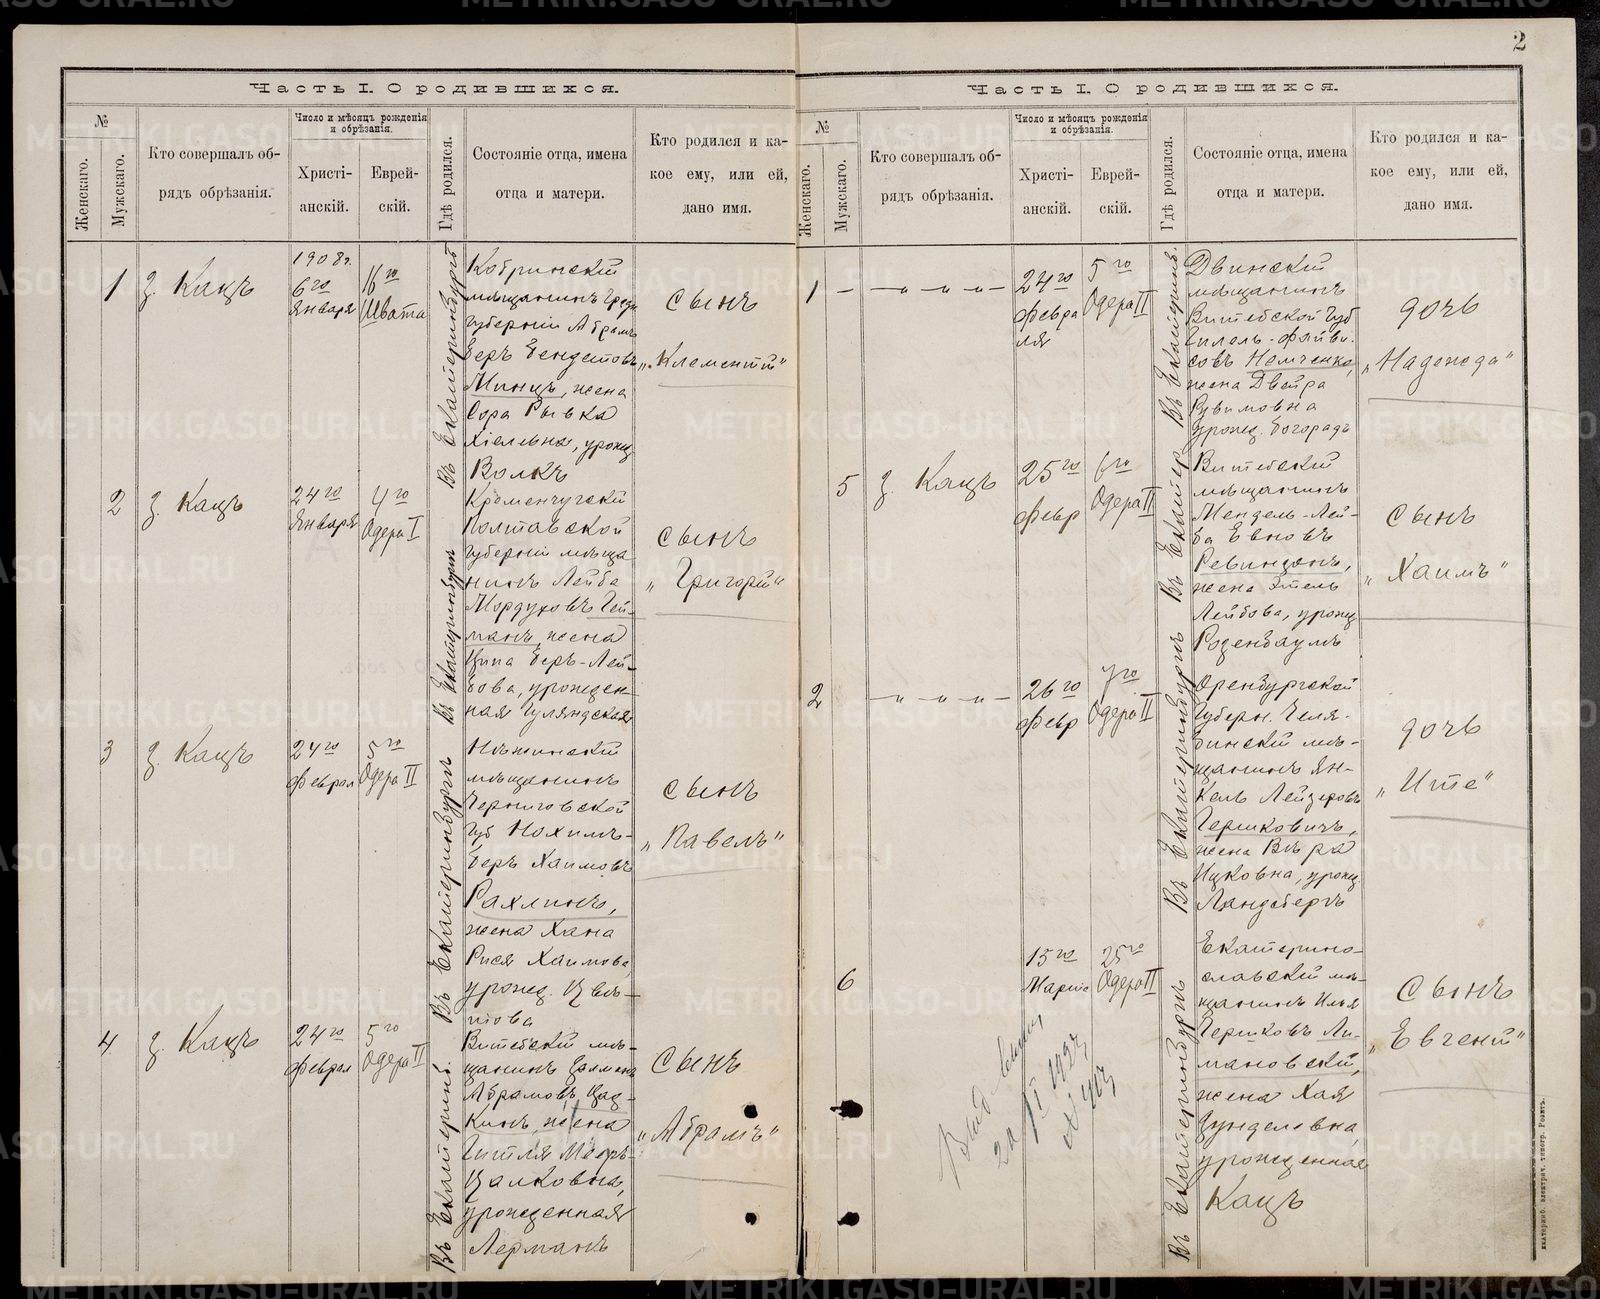 2
Часть I. О родившихся.
№
Женскаго.
Мужскаго.
Кто совершалъ об-
рядъ обрѣзанія.
Число и мѣсяцъ рожденія
и обрѣзанія.
Христі-
анскій.
Еврей-
скій.
Гдѣ родился.
Состояніе отца, имена
отца и матери.
Кто родился и ка-
кое ему, или ей,
дано имя.
1
З. Кацъ
1908 г.
6го
Января
16го
Швата
Въ Екатеринбургѣ
Кобринскій
мѣщанинъ Гродн
губерніи Абрамъ
Беръ Бендетовъ
Минцъ, жена
Сора Рывка
Хіелевна, урожд
Волкъ
сынъ
„Клементій"
2
З. Кацъ
24го
Января
4го
Одера I
Въ Екатеринбургѣ
Кременчугскій
Полтавской
губерніи мѣща-
нинъ Лейба
Мордуховъ Гей-
манъ, жена
Ципа Беръ-Лей-
бова, урожден-
ная Гуляндская
сынъ
„Григорій"
3
З. Кацъ
24го
Феврал
5го
Одера II
Въ Екатеринбургѣ
Нѣжинскій
мѣщанинъ
Черниговской
губ Нохимъ-
Беръ Хаимовъ
Рахлинъ,
жена Хана
Рися Хаимова,
урожд. Цвѣ-
това
сынъ
„Павелъ"
4
З. Кацъ
24го
Феврал
5го
Одера II
Въ Екатеринб.
Витебскій мѣ-
щанинъ Залманъ
Абрамовъ Цад-
кинъ, жена
Гитля Мееръ-
Цалковна,
урожденная
Лерманъ
сынъ
„Абрамъ"
Часть I. О родившихся.
№
Женскаго.
Мужскаго.
Кто совершалъ об-
рядъ обрѣзанія.
Число и мѣсяцъ рожденія
и обрѣзанія.
Христі-
анскій.
Еврей-
скій.
Гдѣ родился.
Состояніе отца, имена
отца и матери.
Кто родился и ка-
кое ему, или ей,
дано имя.
1 — —„—„—„—
24го
Февра
ля
5го
Одера II
Въ Екатеринб.
Двинскій
мѣщанинъ
Витебской губ
Гилель-Файви-
совъ Немченко,
жена Двейра
Рувимовна
урожд. Богорадъ
дочь
„Надежда"
5
З. Кацъ
25го
Февр
6го
Одера II
Въ Екатер
Витебскій
мѣщанинъ
Мендель-Лей-
ба Евновъ
Ревинзонъ,
жена Этель
Лейбова, урожд
Розенбаумъ
сынъ
„Хаимъ"
2 —„—„—„—
26го
Февр
7го
Одера II
Въ Екатеринбургѣ
Оренбургской
губерн. Челя-
бинскій мѣ-
щанинъ Ян-
кель Лейзеровъ
Гершковичъ,
жена Вѣра
Ицковна, урожд.
Ландсбергъ
дочь
„Ите"
6
15го
Марта
25го
Одера II
Въ Екатеринбургѣ
Екатерино-
славскій мѣ-
щанинъ Илья
Гершковъ Ли-
мановскій,
жена Хая
Зунделевна,
урожденная
Кацъ
сынъ
„Евгеній"
екатеринб. электрич. типогр. Розетъ.
METRIKI.GASO-URAL.RU